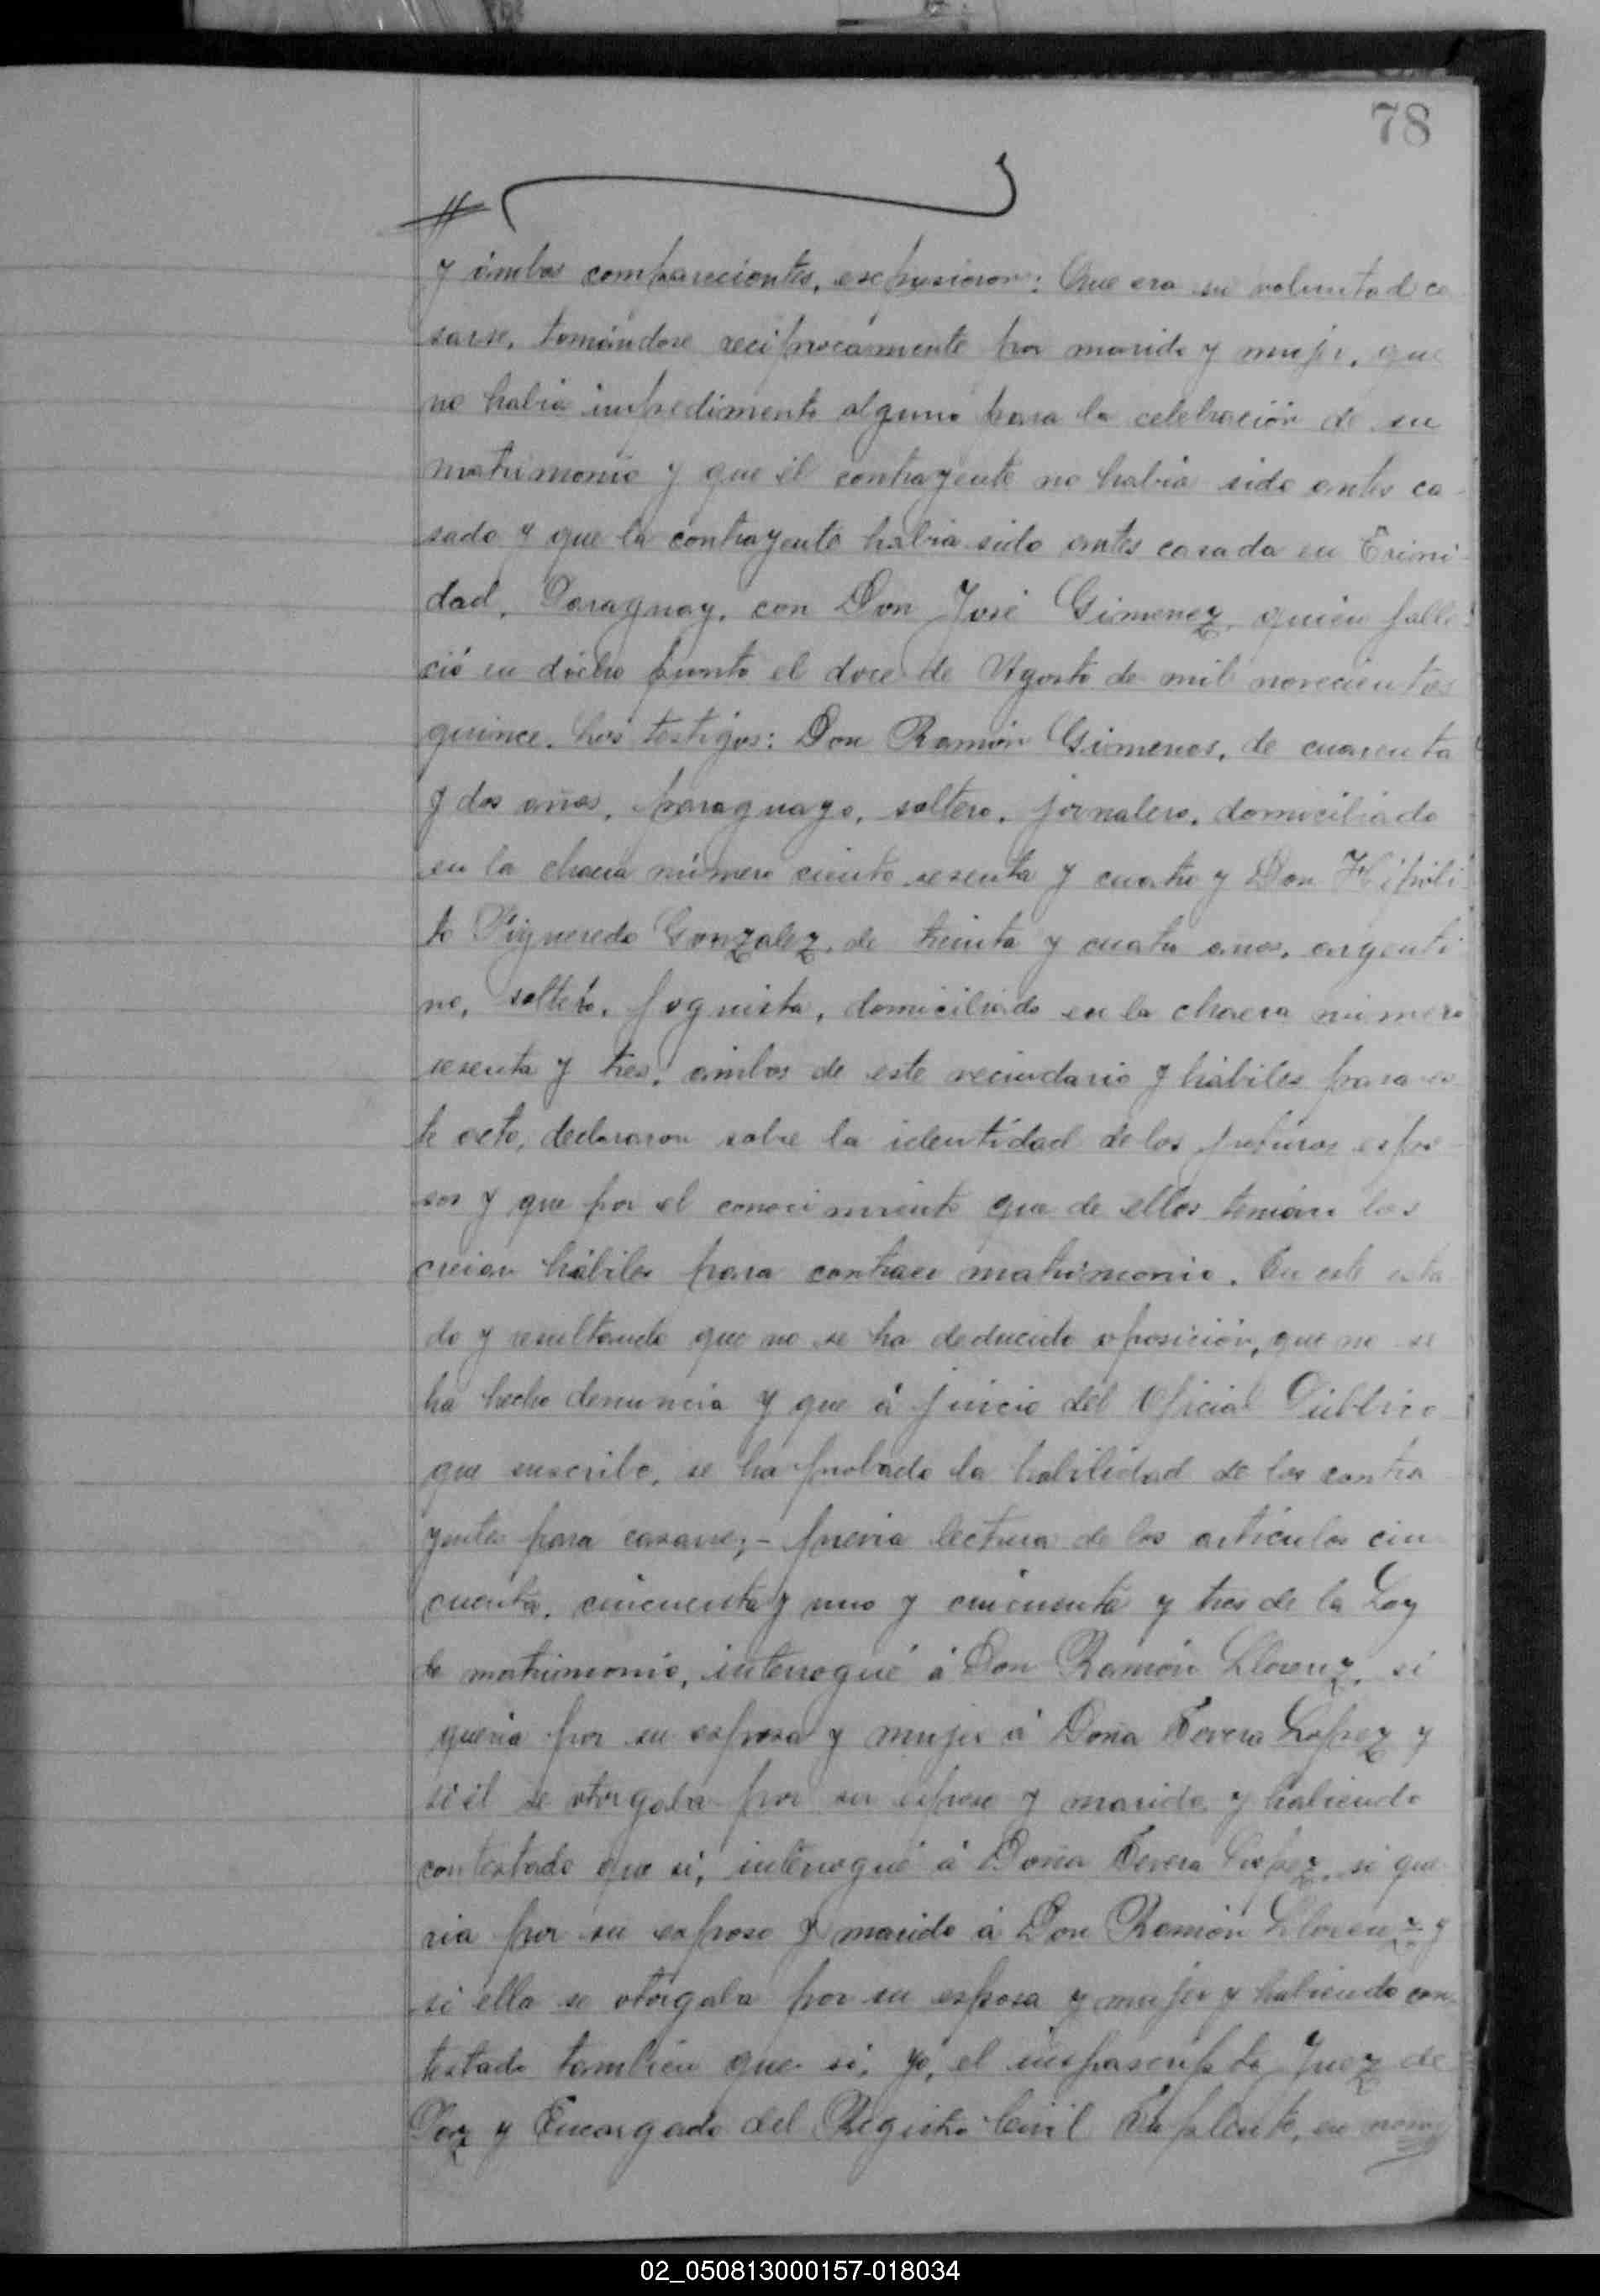 78
y ámbos comparecientes, expusieron: Que era su voluntad ca
sarse, tomándose recíprocamente por marido y mujer, que
no habia impedimento alguno para la celebración de su
matrimonio y que él contrayente no habia sido antes ca
sado y que la contrayente habia sido antes casada en Trini
dad, Paraguay, con Don José Gimenez, quien falle
ció en dicho punto el doce de Agosto de mil novecientos
quince. Los testigos: Don Ramón Gimenes, de cuarenta
y dos años, paraguayo, soltero, jornalero, domiciliado
en la chacra número ciento sesenta y cuatro y Don Hipóli
to Figueredo Gonzalez, de treinta y cuatro años, argenti
no, soltero, foguista, domiciliado en la chacra número
sesenta y tres, ámbos de este vecindario y hábiles para es
te acto, declararon sobre la identidad de los futuros espo
sos y que por el conocimiento que de ellos tenian los
creian hábiles para contraer matrimonio. En este esta
do y resultando que no se ha deducido oposición, que no se
ha hecho denuncia y que á juicio del Oficial Público
que suscribe, se ha probado la habilidad de los contra
yentes para casarse; - previa lectura de los artículos cin
cuenta, cincuenta y uno y cincuenta y tres de la Ley
de matrimonio, interrogué á Don Ramón Llorenz, si
queria por su esposa y mujer á Doña Lopez y
si él se otorgaba por su esposo y marido y habiendo
contestado que sí, interrogué á Doña Lopez, si que
ria por su esposo y marido á Don Ramón Llorenz y
si ella se otorgaba por su esposa y mujer y habiendo con
testado también que sí, yo, el infrascripto Juez de
Paz y Encargado del Registro Civil Suplente, en nom
02_050813000157-018034